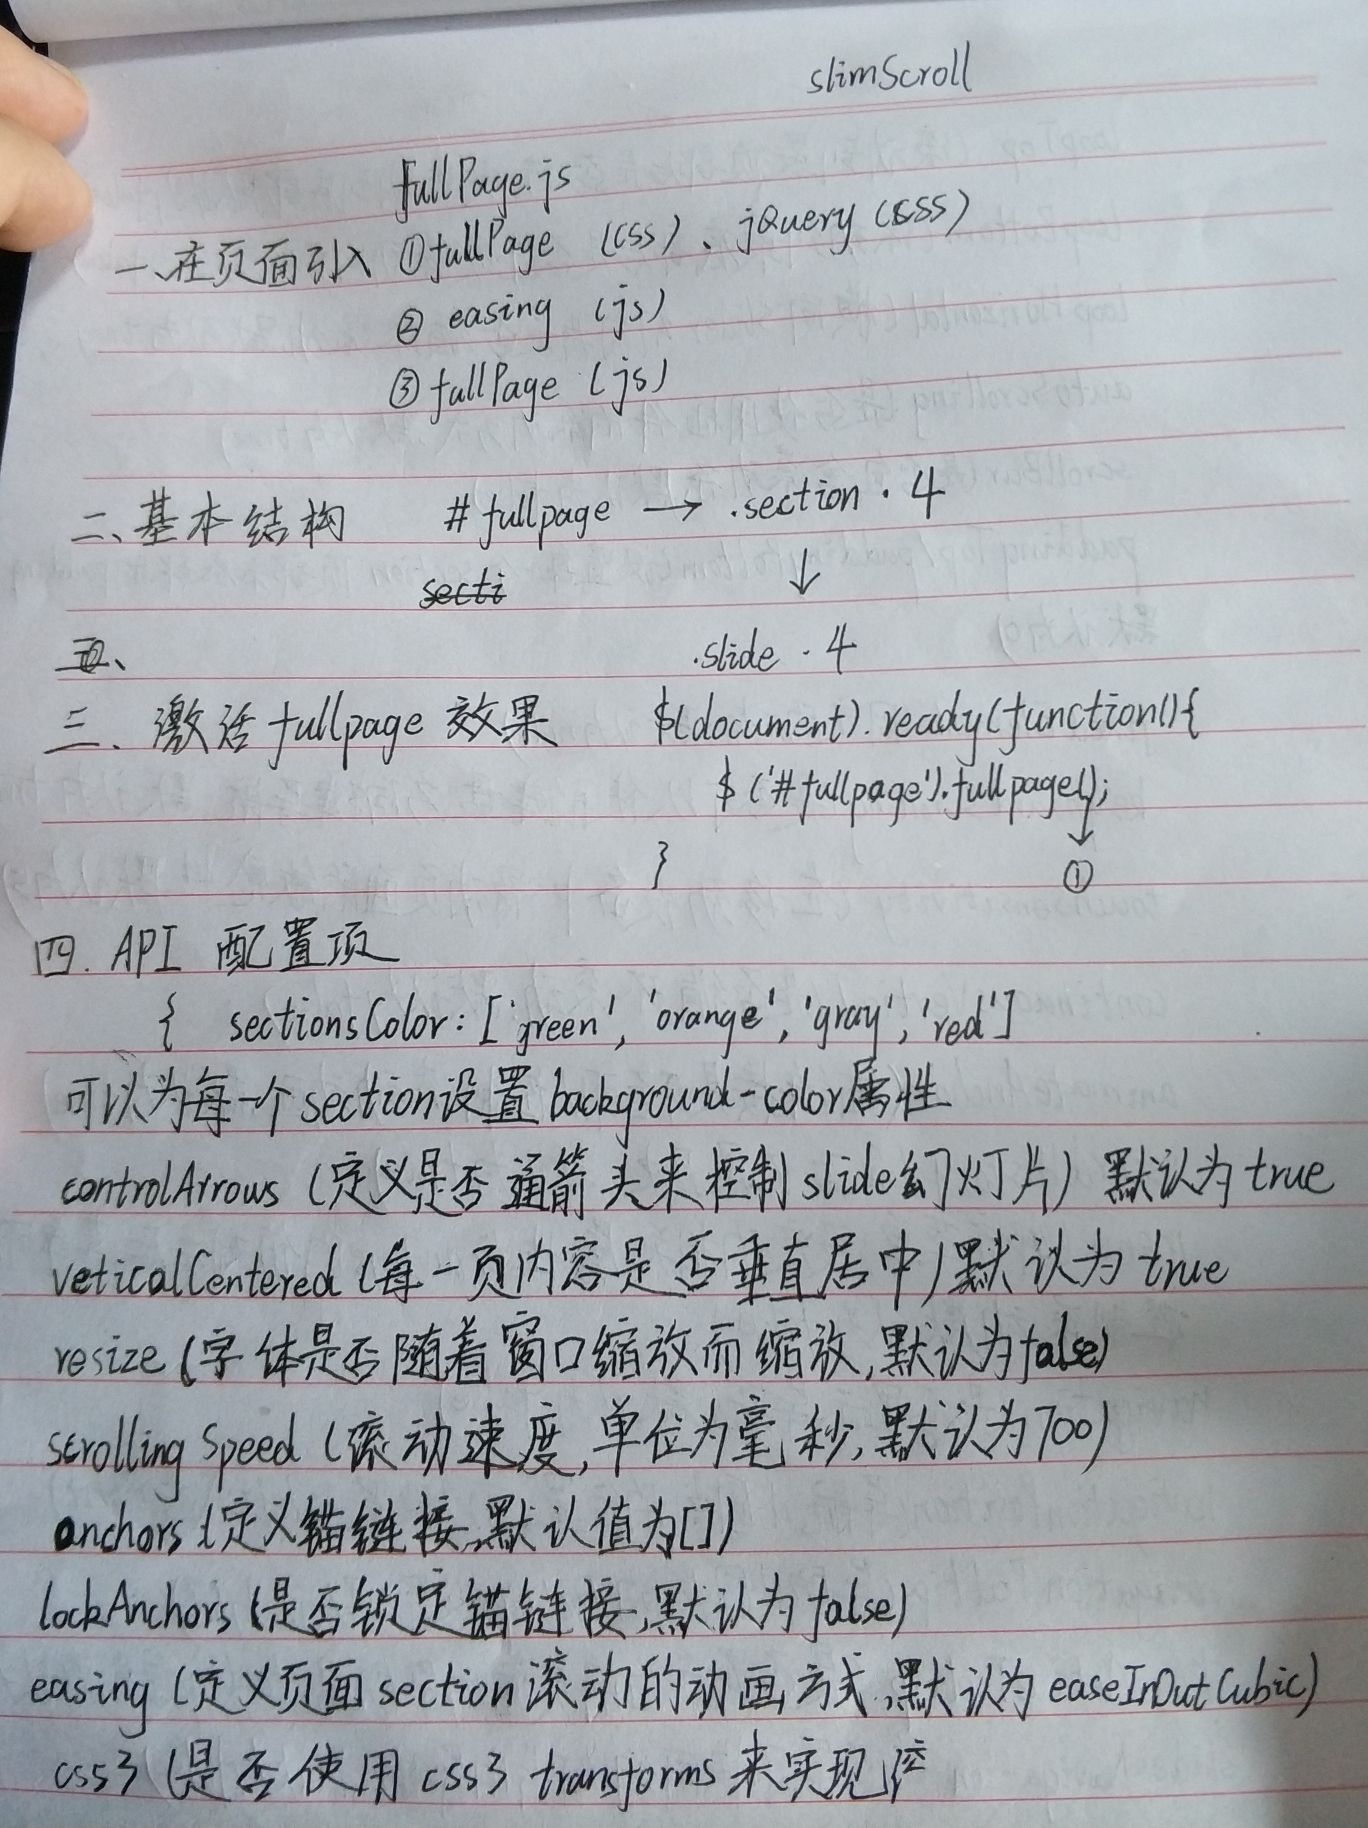 slimScroll
fullPage.js
一、在页面引入 ①fullPage (css)、jQuery (css)
② easing (js)
③ fullPage (js)
二、基本结构 #fullpage → .section · 4
secti ↓
.slide · 4
三、激活fullpage效果 $(document).ready(function(){
$('#fullpage').fullpage();
↓
} ①
四. API 配置项
{ sectionsColor: ['green', 'orange', 'gray', 'red']
可以为每一个section设置background-color属性
controlArrows (定义是否通箭头来控制slide幻灯片) 默认为true
veticalCentered (每一页内容是否垂直居中) 默认为true
resize (字体是否随着窗口缩放而缩放,默认为false)
scrolling Speed (滚动速度,单位为毫秒,默认为700)
anchors (定义锚链接,默认值为[])
lockAnchors (是否锁定锚链接,默认为false)
easing (定义页面section滚动的动画方式,默认为easeInOutCubic)
css3 (是否使用css3 transforms来实现